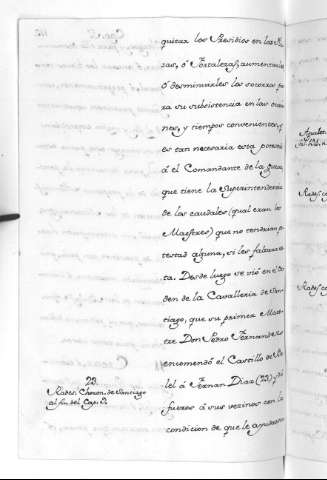 quiera los Presidios en las Pla-
zas, ó Fortalezas, aumentarles
ó desminuirles los socorros pa
ra su subsistencia en las oca
nes, y tiempos convenientes, y
es tan necesaria esta potestad
á el Comandante de la guerra
que tiene la Superintendencia
de los caudales (qual eran los
Maestres) que no tendrian po
testad alguna, si les faltara es
ta. Desde luego se vió en el Or
den de la Cavalleria de San-
tiago, que su primer Maes-
tre Don Pedro Fernandez
encomendó el Castillo de
lel á Fernan Diaz (23) y
fueros á sus vezinos con la
condicion de que le ayudasen
23.
Rades. Chron. de Santiago
al fin del Cap.